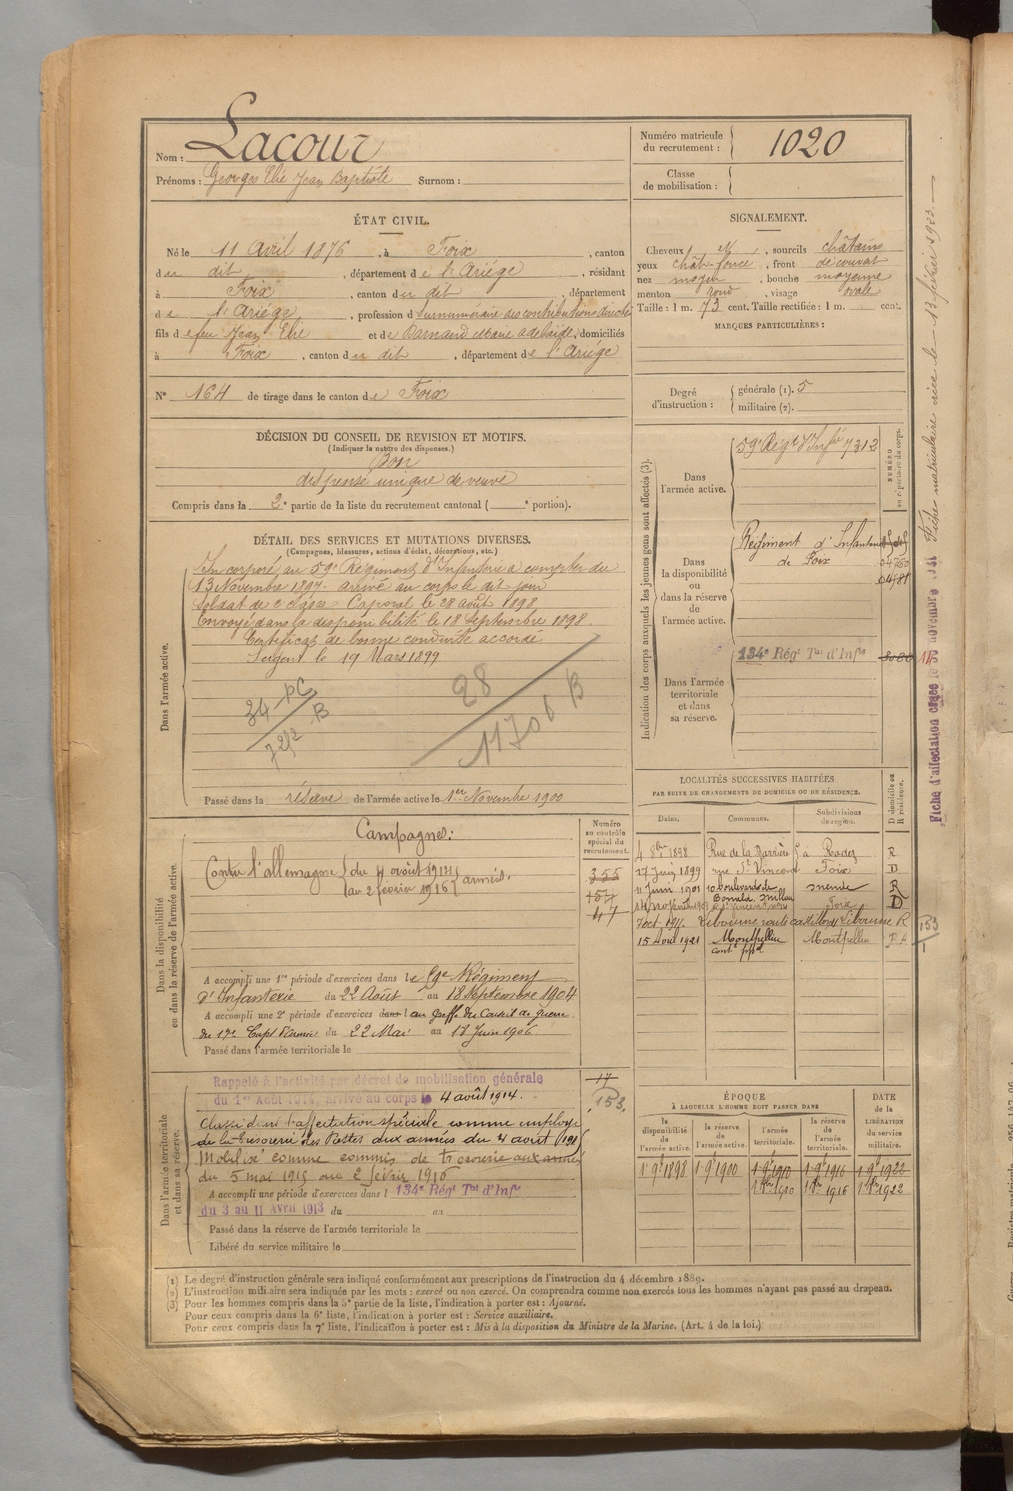 Nom : Lacour
Prénoms : Georges Elie Jean Baptiste Surnom :
Numéro matricule du recrutement : 1020
Classe de mobilisation :
ÉTAT CIVIL.
Né le 11 Avril 1876, à Foix, canton
du dit, département de l'Ariége, résidant
à Foix, canton du dit, département
de l'Ariége, profession de Surnuméraire des contributions directes
fils de feu Jean Elie et de Marie Adelaïde, domiciliés
à Foix, canton du dit, département de l'Ariége
N° 164 de tirage dans le canton de Foix
SIGNALEMENT.
Cheveux, sourcils châtains
yeux chât. foncé, front découvert
nez moyen, bouche moyenne
menton rond, visage ovale
Taille : 1 m. 73 cent. Taille rectifiée : 1 m. cent.
MARQUES PARTICULIÈRES :
Degré d'instruction : générale (1). 5
militaire (2).
DÉCISION DU CONSEIL DE REVISION ET MOTIFS.
(Indiquer la nature des dispenses.)
Bon
dispensé unique de veuve
Compris dans la 2e partie de la liste du recrutement cantonal ( e portion).
DÉTAIL DES SERVICES ET MUTATIONS DIVERSES.
(Campagnes, blessures, actions d'éclat, décorations, etc.)
Dans l'armée active.
Incorporé au 59e Régiment d'Infanterie à compter du
13 Novembre 1897. arrivé au corps le dit jour
Soldat de 2e classe Caporal le 28 août 1898
Envoyé dans la disponibilité le 18 Septembre 1898.
Certificat de bonne conduite accordé
Sergent le 19 Mars 1899
28
11706 B
Passé dans la réserve de l'armée active le 1er Novembre 1900
Indication des corps auxquels les jeunes gens sont affectés (3).
NUMÉRO au répertoire du corps.
Dans l'armée active.
59e Régt d'Infie 7312
Dans la disponibilité ou dans la réserve de l'armée active.
Régiment d'Infanterie
de Foix
Dans l'armée territoriale et dans sa réserve.
134e Régt Tal d'Infie
Fiche matriculaire créée le 13 février 1923.
LOCALITÉS SUCCESSIVES HABITÉES
PAR SUITE DE CHANGEMENTS DE DOMICILE OU DE RÉSIDENCE.
Dates. Communes. Subdivisions de région. D domicile ou R résidence.
4 8bre 1898 Rue de la Barrière à Rodez R
27 Juin 1899 rue St Vincent Foix D
11 Juin 1901 10 boulevard de Bonald Millau Mende R
7 oct. 1911. Libourne route castillon Libourne R
15 Avril 1921 Montpellier Montpellier
Dans la disponibilité ou dans la réserve de l'armée active.
Numéro au contrôle spécial du recrutement.
355
Campagnes :
Contre l'allemagne du 4 août 1914 au 2 février 1916 armées.
A accompli une 1re période d'exercices dans le 59e Régiment
d'Infanterie du 22 Août au 18 Septembre 1904
A accompli une 2e période d'exercices dans au Greffe du Conseil de guerre
du 17e Corps d'Armée du 22 Mai au 17 Juin 1906
Passé dans l'armée territoriale le
Dans l'armée territoriale et dans sa réserve.
Rappelé à l'activité par décret de mobilisation générale
du 1er Août 1914, arrivé au corps le 4 août 1914.
17
153
Classé dans l'affectation spéciale comme employé
de la trésorerie des Postes aux armées du 4 août 191
Mobilisé comme commis de trésorerie aux armées
du 5 mai 1915 au 2 février 1916
A accompli une période d'exercices dans l 134e Régt Tal d'Infie
du 3 au 11 Avril 1913 du au
Passé dans la réserve de l'armée territoriale le
Libéré du service militaire le
ÉPOQUE
À LAQUELLE L'HOMME DOIT PASSER DANS
DATE de la LIBÉRATION du service militaire.
la disponibilité de l'armée active. la réserve de l'armée active. l'armée territoriale. la réserve de l'armée territoriale.
1 9bre 1898 1 9bre 1900 1 9bre 1910 1 9bre 1916 1 9bre 1922
1910 1916 1922
(1) Le degré d'instruction générale sera indiqué conformément aux prescriptions de l'instruction du 4 décembre 1889.
(2) L'instruction militaire sera indiquée par les mots : exercé ou non exercé. On comprendra comme non exercés tous les hommes n'ayant pas passé au drapeau.
(3) Pour les hommes compris dans la 5e partie de la liste, l'indication à porter est : Ajourné.
Pour ceux compris dans la 6e liste, l'indication à porter est : Service auxiliaire.
Pour ceux compris dans la 7e liste, l'indication à porter est : Mis à la disposition du Ministre de la Marine. (Art. 4 de la loi.)